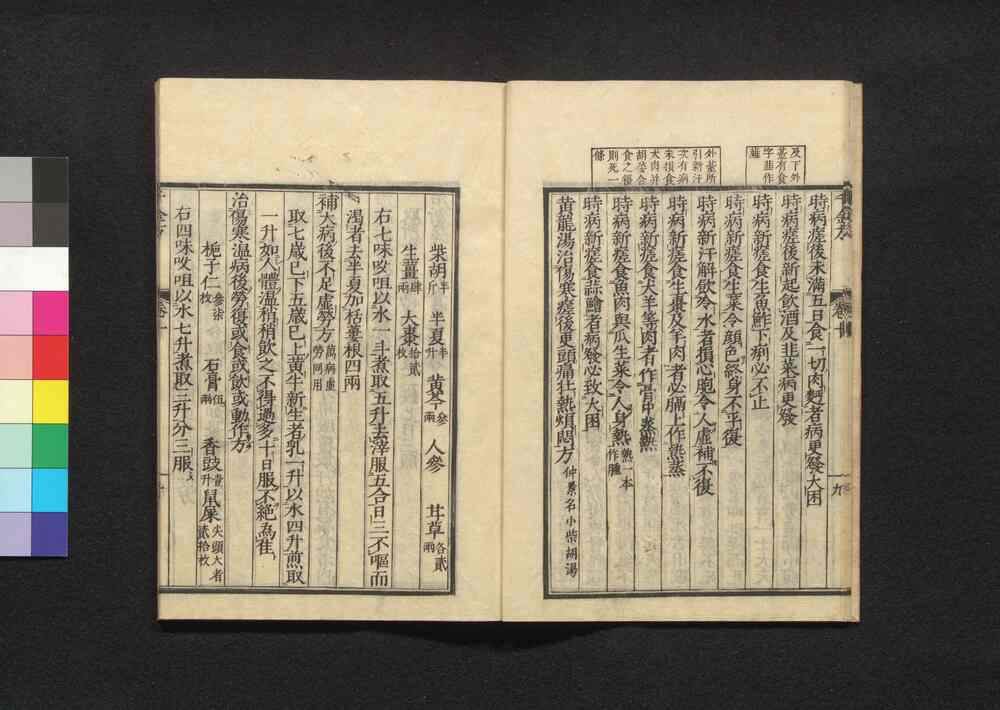 及下外
臺有食
字韭作
薤
外臺所
引新汗
次有病
未損食
犬肉并
胡荽合
食之頓
則死一
條
千金方
卷十
九
時病瘥後未滿五日食一切肉麪者病更發大困
時病瘥後新起飲酒及韭菜病更發
時病新瘥食生魚鮓下痢必不止
時病新瘥食生菜令顏色終身不平復
時病新汗解飲冷水者損心胞令人虛補不復
時病新瘥食生棗及羊肉者必膈上作熱蒸
時病新瘥食犬羊等肉者作骨中蒸熱
時病新瘥食魚肉與瓜生菜令人身熱熱一本作腫
時病新瘥食蒜鱠者病發必致大困
黃龍湯治傷寒瘥後更頭痛壯熱煩悶方仲景名小柴胡湯
柴胡半斤 半夏半升 黃芩參兩 人參 甘草各貳兩
生薑肆兩 大棗拾貳枚
右七味㕮咀以水一斗煮取五升去滓服五合日三不嘔而
渴者去半夏加栝蔞根四兩
補大病後不足虛勞方萬病虛勞同用
取七歲已下五歲已上黃牛新生者乳一升以水四升煎取
一升如人體溫稍稍飲之不得過多十日服不絕為佳
治傷寒溫病後勞復或食或飲或動作方
梔子仁參柒枚 石膏伍兩 香豉壹升 鼠屎尖頭大者貳拾枚
右四味㕮咀以水七升煮取三升分三服
千金方
卷十